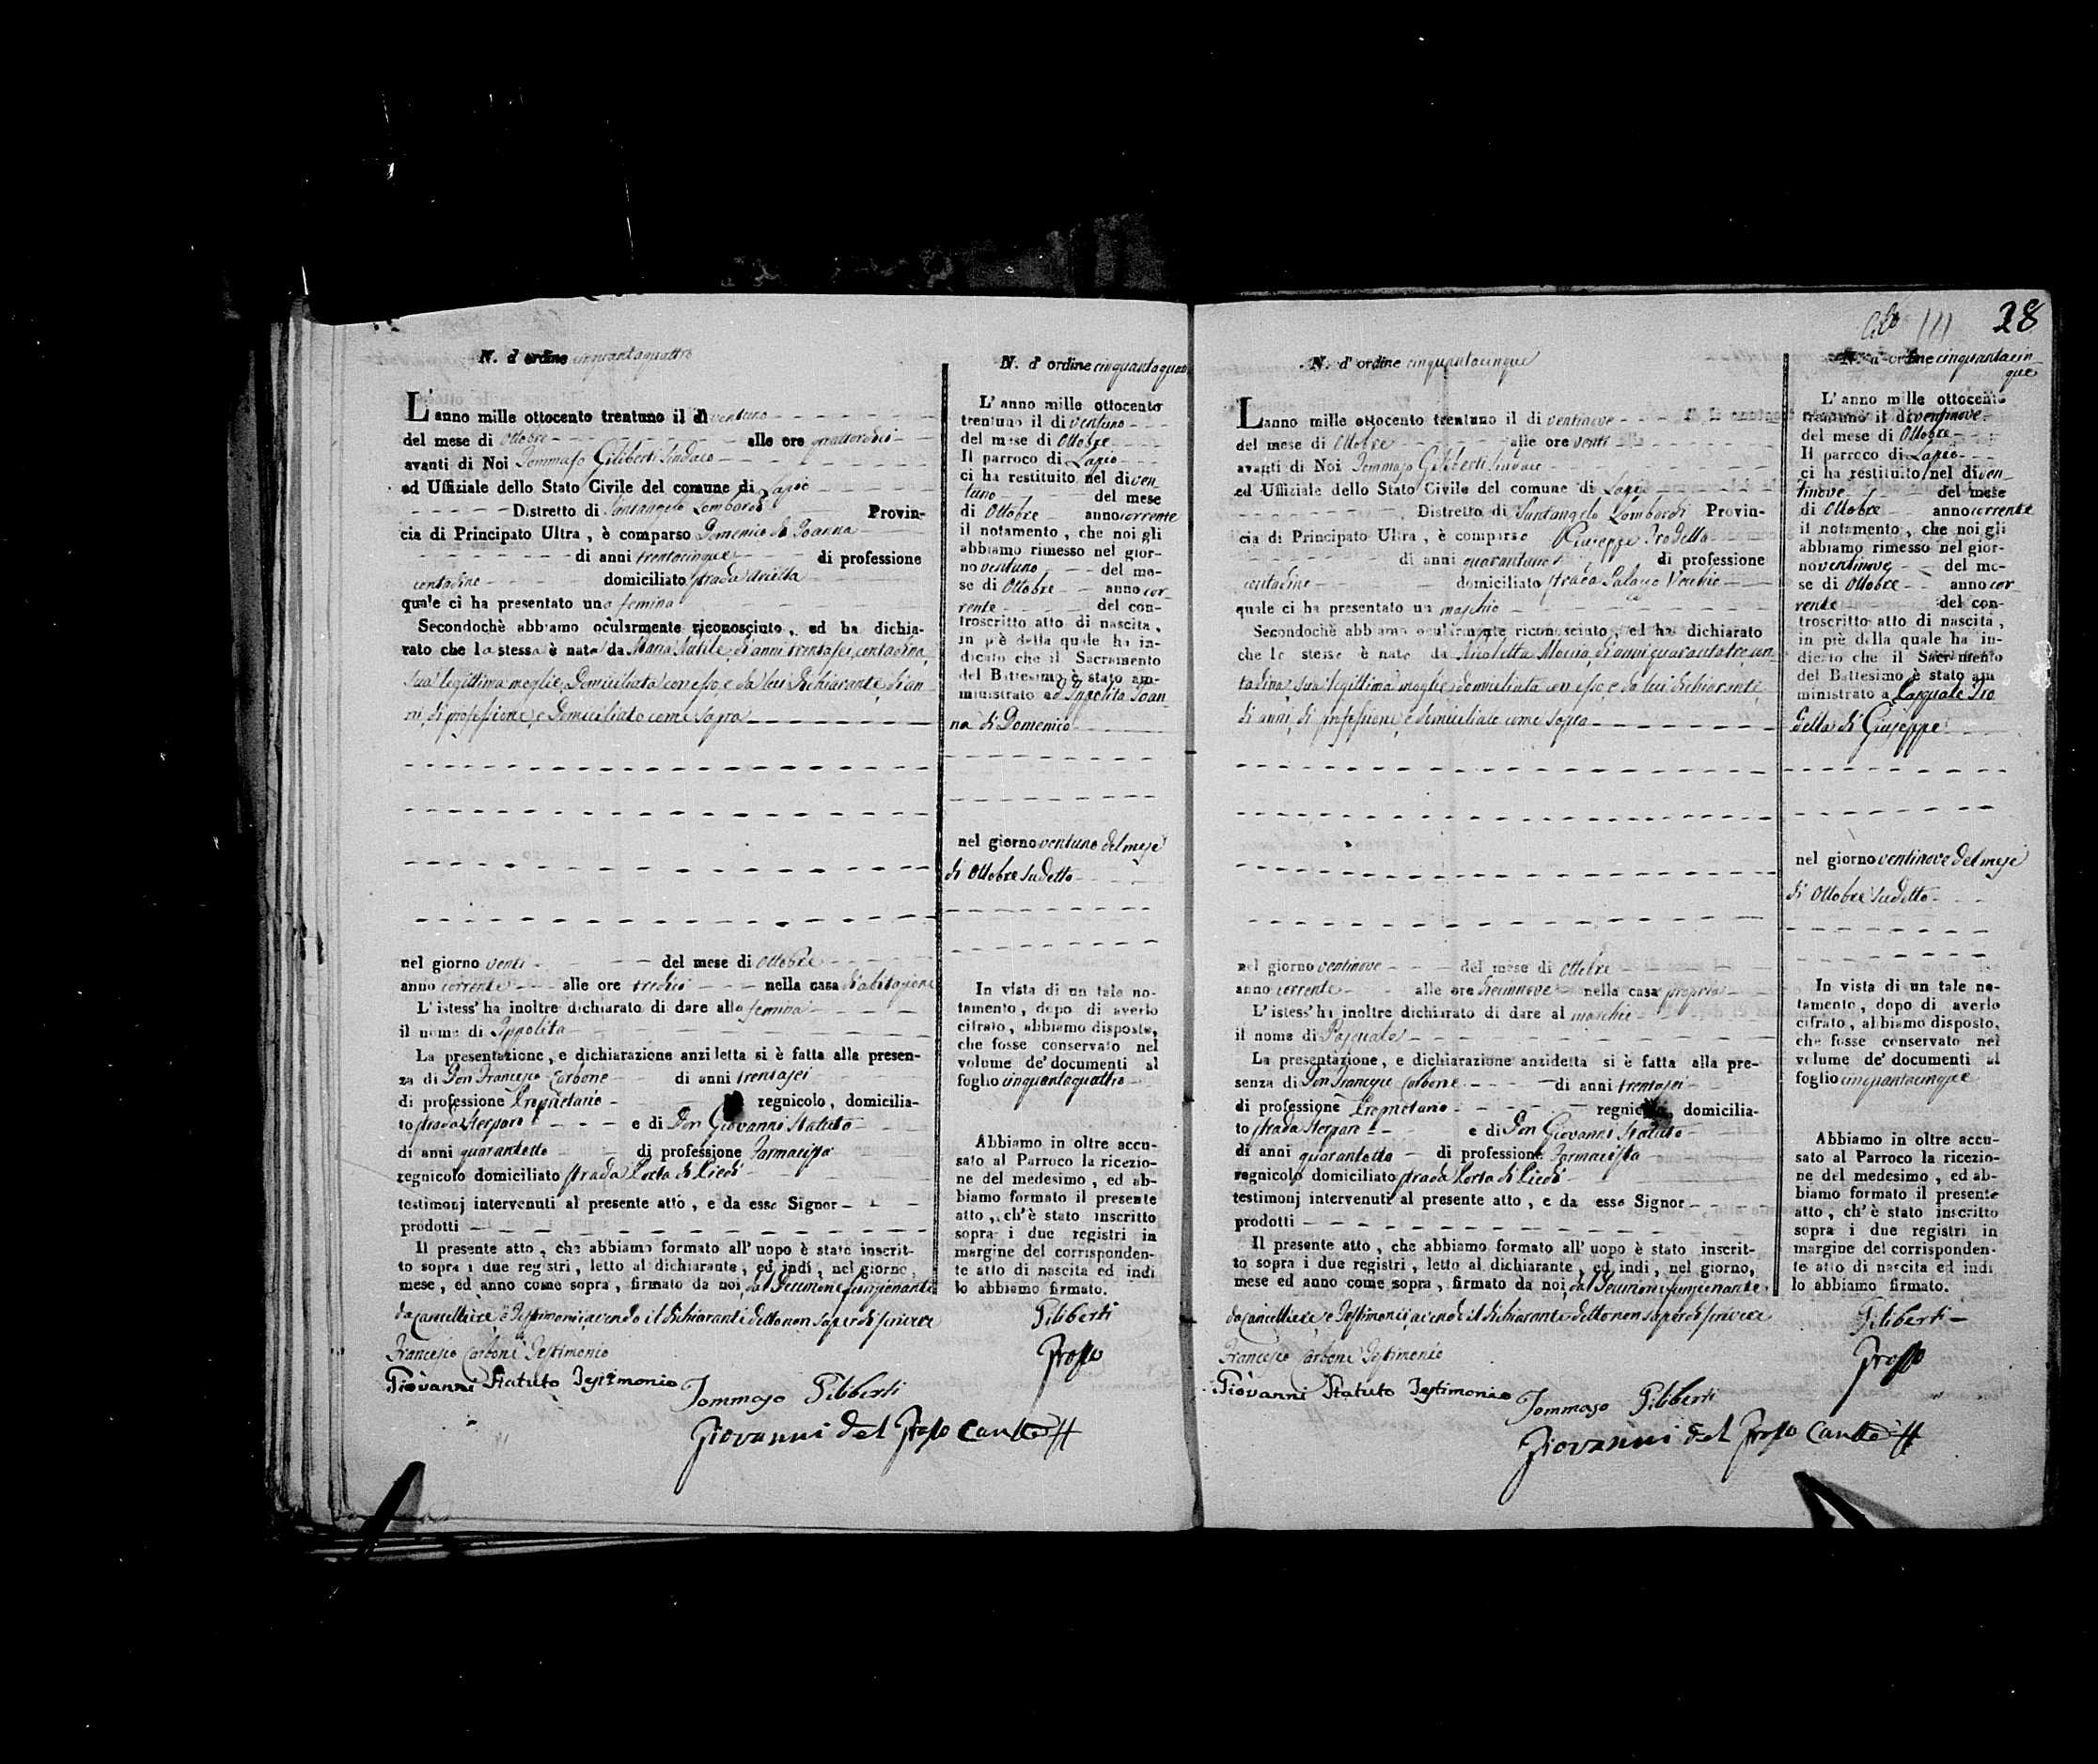 N. d'ordine cinquantaquattro
L'anno mille ottocento trentuno il di ventuno
del mese di Ottobre alle ore quattordici
avanti di Noi Tommaso Giliberti Sindaco
ed Uffiziale dello Stato Civile del comune di Lapio
Distretto di Santangelo Lombardi Provin-
cia di Principato Ultra, è comparso Domenico di Ioanna
di anni trentacinque di professione
contadino domiciliato strada Arietta
quale ci ha presentato una femina
Secondochè abbiamo ocularmente riconosciuto, ed ha dichia-
rato che la stessa è nata da Maria Nutile, di anni trentasei, contadina,
sua legittima moglie, domiciliata con esso, e da lui dichiarante, di an-
ni, di professione, e domiciliato come sopra
nel giorno venti del mese di Ottobre
anno corrente alle ore tredici nella casa d'abitazione
L'istess' ha inoltre dichiarato di dare alla femina
il nome di Ippolita
La presentazione, e dichiarazione anzidetta si è fatta alla presen-
za di Don Francesco Carbone di anni trentasei
di professione Proprietario regnicolo, domicilia-
to strada Sterparo e di Don Giovanni Statuto
di anni quarantotto di professione Farmacista
regnicolo domiciliato strada Porta di Piedi
testimonj intervenuti al presente atto, e da esso Signor
prodotti
Il presente atto, che abbiamo formato all' uopo è stato inscrit-
to sopra i due registri, letto al dichiarante, ed indi, nel giorno,
mese, ed anno come sopra, firmato da noi, dal Decurione funzionante
da Cancelliere, e Testimonj avendo il dichiarante detto non saper di scrivere
Francesco Carbone Testimonio
Giovanni Statuto Testimonio
Tommaso Giliberti
Giovanni del Grosso
N. d'ordine cinquantaquat
L'anno mille ottocento
trentuno il di ventuno
del mese di Ottobre
Il parroco di Lapio
ci ha restituito nel di ven-
tuno del mese
di Ottobre anno corrente
il notamento, che noi gli
abbiamo rimesso nel gior-
no ventuno del me-
se di Ottobre anno cor-
rente del con-
troscritto atto di nascita,
in piè della quale ha in-
dicato che il Sacramento
del Battesimo è stato am-
ministrato ad Ippolita Ioan-
na di Domenico
nel giorno ventuno del mese
di Ottobre sudetto
In vista di un tale no-
tamento, dopo di averlo
cifrato, abbiamo disposto,
che fosse conservato nel
volume de' documenti al
foglio cinquantaquattro
Abbiamo in oltre accu-
sato al Parroco la ricezio-
ne del medesimo, ed ab-
biamo formato il presente
atto, ch'è stato inscritto
sopra i due registri in
margine del corrisponden-
te atto di nascita ed indi
lo abbiamo firmato.
Giliberti
Grosso
28
N. d'ordine cinquantacinque
L'anno mille ottocento trentuno il di ventinove
del mese di Ottobre alle ore venti
avanti di Noi Tommaso Giliberti Sindaco
ed Uffiziale dello Stato Civile del comune di Lapio
Distretto di Santangelo Lombardi Provin-
cia di Principato Ultra, è comparso Giuseppe Trodella
di anni quarantuno di professione
contadino domiciliato strada Palazzo Vecchio
quale ci ha presentato un maschio
Secondochè abbiamo ocularmente riconosciuto, ed ha dichiarato
che lo stesso è nato da Nicoletta Moccia, di anni quarantatre, con-
tadina, sua legittima moglie, domiciliata con esso, e da lui dichiarante
di anni, di professione, e domiciliato come sopra
nel giorno ventinove del mese di Ottobre
anno corrente alle ore diecinnove nella casa propria
L'istess' ha inoltre dichiarato di dare al maschio
il nome di Pasquale
La presentazione, e dichiarazione anzidetta si è fatta alla pre-
senza di Don Francesco Carbone di anni trentasei
di professione Proprietario regnicolo, domicilia-
to strada Sterparo e di Don Giovanni Statuto
di anni quarantotto di professione Farmacista
regnicolo domiciliato strada Porta di Piedi
testimonj intervenuti al presente atto, e da esso Signor
prodotti
Il presente atto, che abbiamo formato all' uopo è stato inscrit-
to sopra i due registri, letto al dichiarante, ed indi, nel giorno,
mese ed anno come sopra, firmato da noi, dal Decurione funzionante
da Cancelliere, e Testimonj avendo il dichiarante detto non saper di scrivere
Francesco Carbone Testimonio
Giovanni Statuto Testimonio
Tommaso Giliberti
Giovanni del Grosso
N. d'ordine cinquantacin-
que
L'anno mille ottocento
trentuno il di ventinove
del mese di Ottobre
Il parroco di Lapio
ci ha restituito nel di ven-
tinove del mese
di Ottobre anno corrente
il notamento, che noi gli
abbiamo rimesso nel gior-
no ventinove del me-
se di Ottobre anno cor-
rente del con-
troscritto atto di nascita,
in piè della quale ha in-
dicato che il Sacramento
del Battesimo è stato am
ministrato a Pasquale Tro
della di Giuseppe
nel giorno ventinove del mese
di Ottobre sudetto
In vista di un tale no-
tamento, dopo di averlo
cifrato, abbiamo disposto,
che fosse conservato nel
volume de' documenti al
foglio cinquantacinque
Abbiamo in oltre accu-
sato al Parroco la ricezio-
ne del medesimo, ed ab-
biamo formato il presente
atto, ch'è stato inscritto
sopra i due registri in
margine del corrisponden-
te atto di nascita ed indi
lo abbiamo firmato.
Giliberti
Grosso